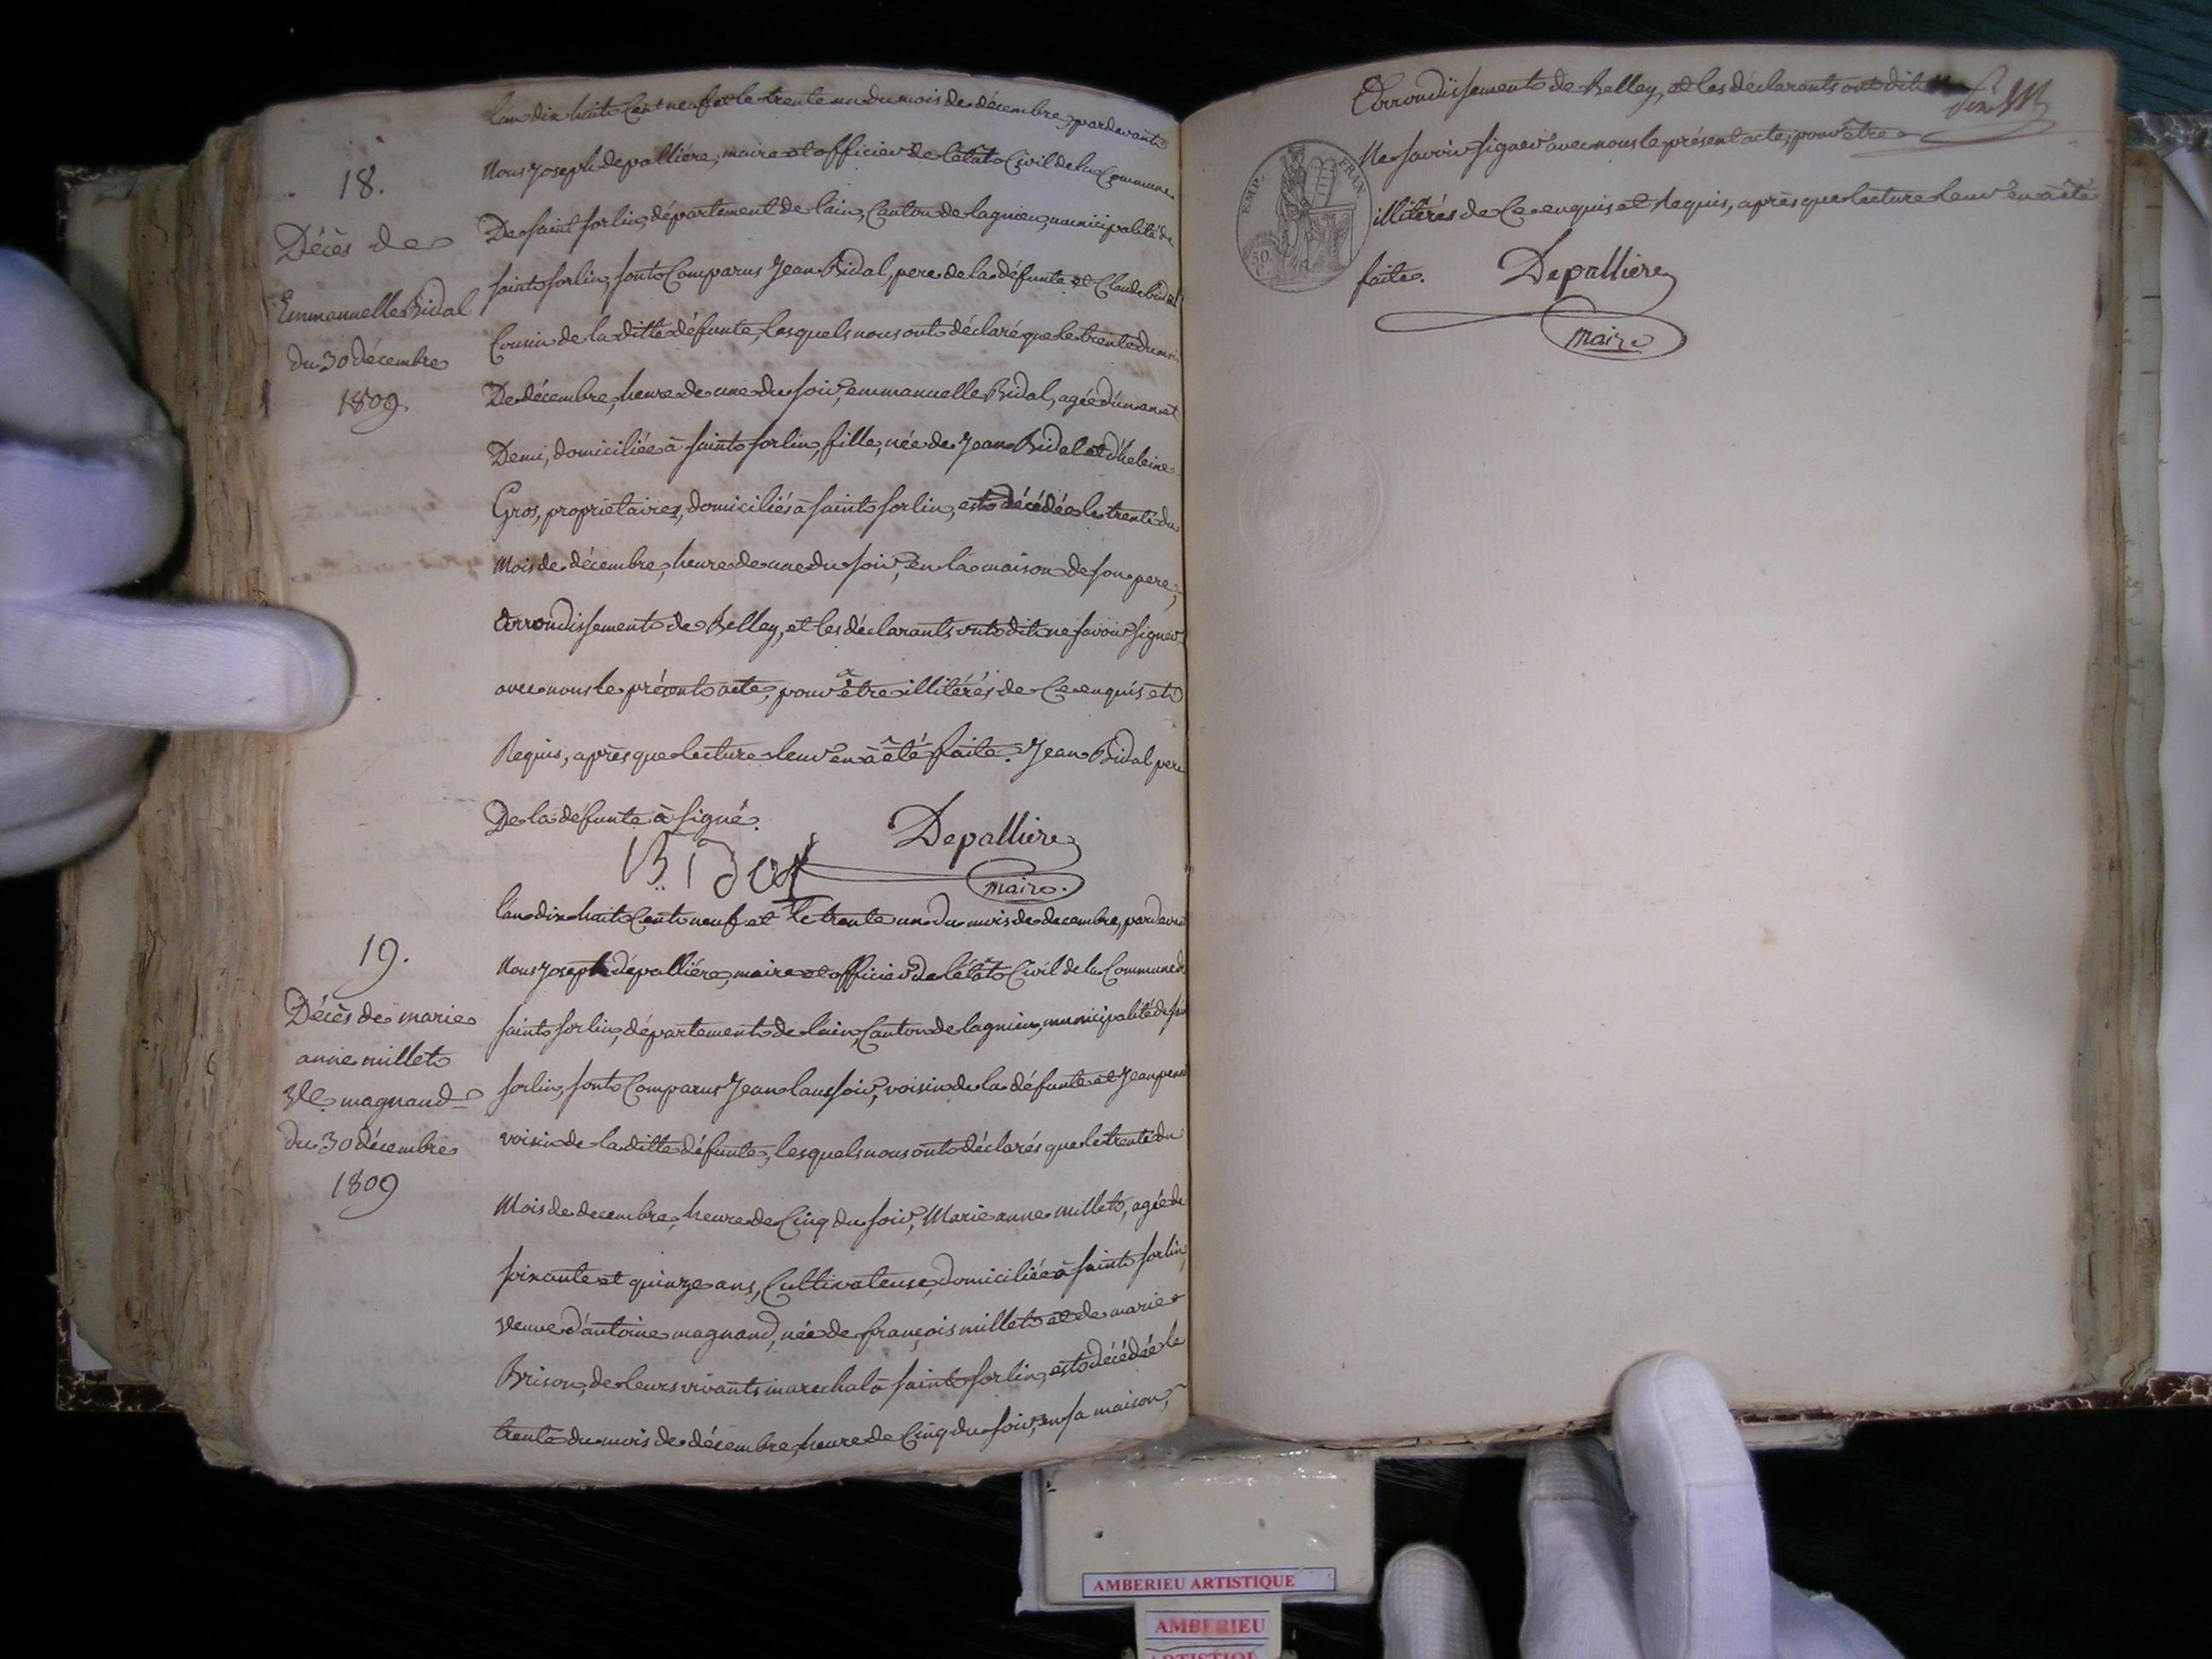 18.
Décès de
Emmanuelle Bidal
du 30 décembre
1809.
l'an dix huit Cent neuf et le trente un du mois de décembre, pardevant
Nous Joseph depalliére, maire et officier de l'état Civil de la Commune
De saint sorlin, département de l'ain, Canton de lagnieu, municipalité de
saint sorlin, sont Comparus Jean Bidal, pere de la défunte et Claude bidal
Cousin de la ditte défunte, lesquels nous ont déclaré que le trente du mois
De décembre, heure de une du soir, emmanuelle Bidal, agée d'un an et
Demi, domiciliée à saint sorlin, fille, née de Jean Bidal et d'heleine
Gros, propriétaires, domiciliés à saint sorlin, est décédée le trente du
Mois de décembre, heure de une du soir, en la maison de son pere,
arrondissement de Belley, et les déclarants ont dit ne savoir signer
avec nous le présent acte, pour être illitérés de Ce enquis et
Requis, après que lecture leur en à été faite. Jean Bidal pere
De la défunte à signé.
Bidal
Depalliere
maire.
19.
Décès de marie
anne millet
Ve. magnand
du 30 décembre
1809
l'an dix huit Cent neuf et le trente un du mois de decembre, pardevant
Nous Joseph depalliére, maire et officier de l'état Civil de la Commune de
saint sorlin, département de l'ain, Canton de lagnieu, municipalité de
sorlin, sont Comparus Jean laussoir, voisin de la défunte et Jean
voisin de la ditte défunte, lesquels nous ont déclarés que le trente du
Mois de decembre, heure de Cinq du soir, Marie anne millet, agée de
soixante et quinze ans, Cultivateuse, domiciliée à saint sorlin,
veuve d'antoine magnand, née de françois millet et de marie
Brison, de leurs vivants marechal à saint sorlin, est décédée le
trente du mois de décembre, heure de Cinq du soir, en sa maison,
arrondissement de Belley, et les déclarants ont dit
Ne savoir signer avec nous le présent acte, pour être
illitérés de Ce enquis et Requis, après que lecture leur en à été
faite.
Depalliere
maire
EMP. FRAN
50 C.
AMBERIEU ARTISTIQUE
AMBERIEU
ARTISTIQUE